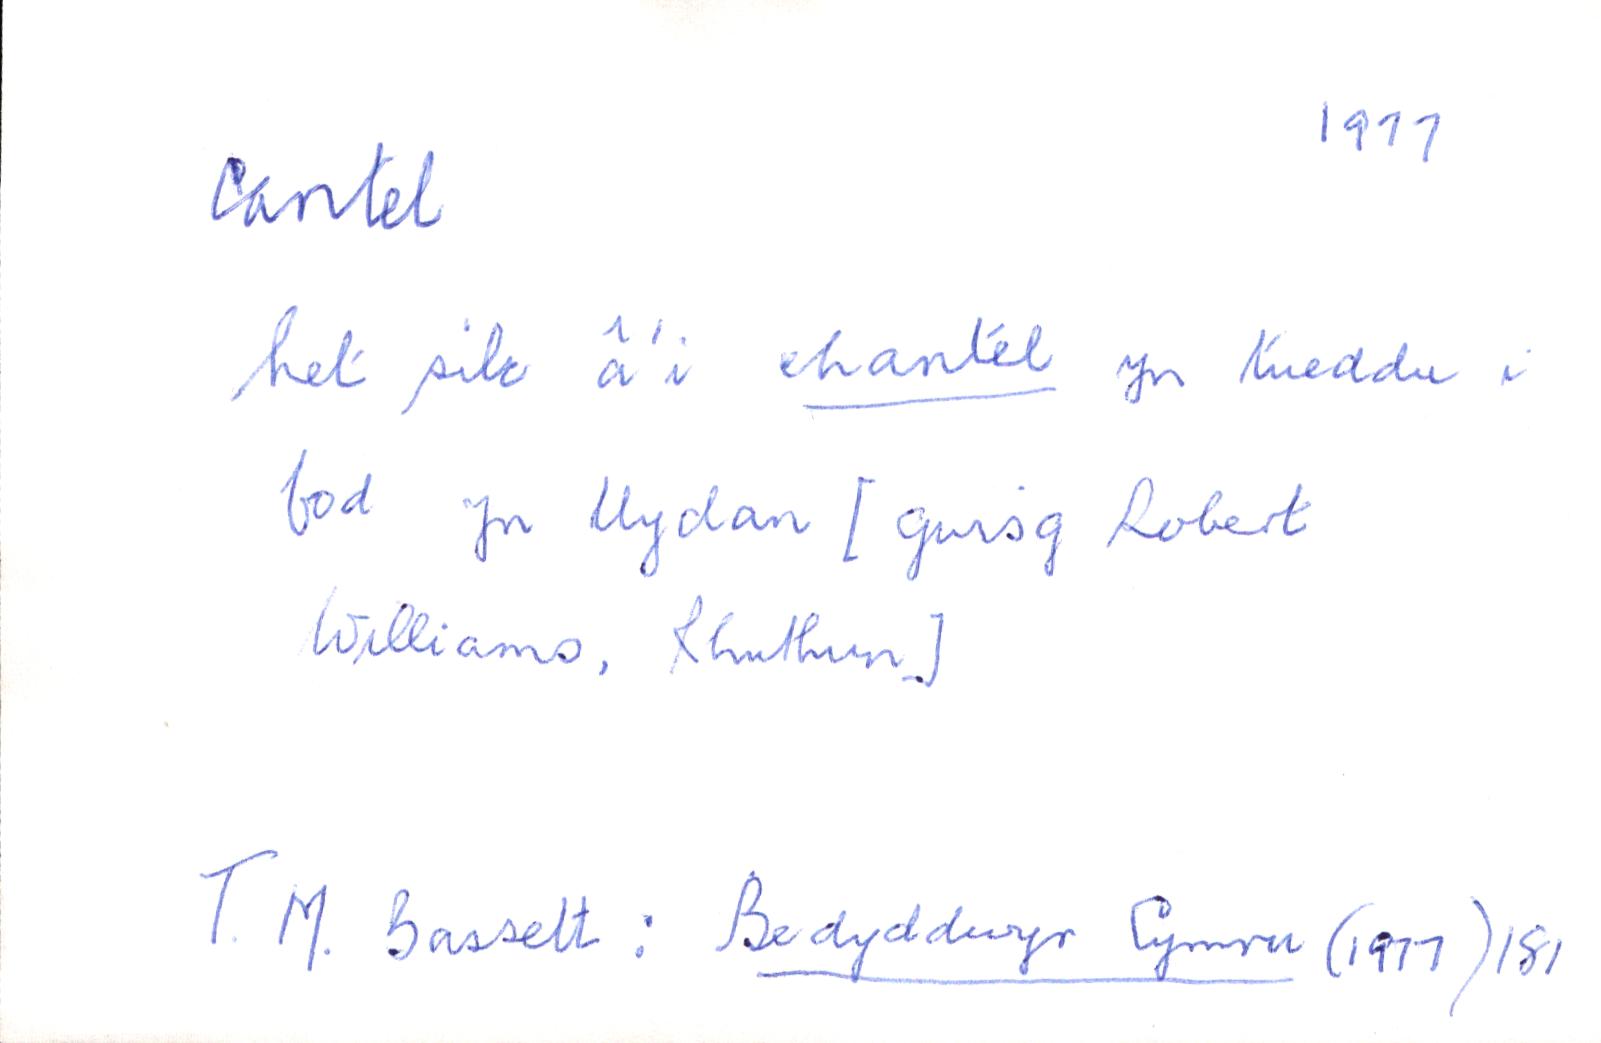 1977
cantel
het silc â'i chantel yn tueddu i
fod yn llydan [gwisg Robert
Williams, Rhuthun]
T. M. Bassett : Bedyddwyr Cymru (1977) 181